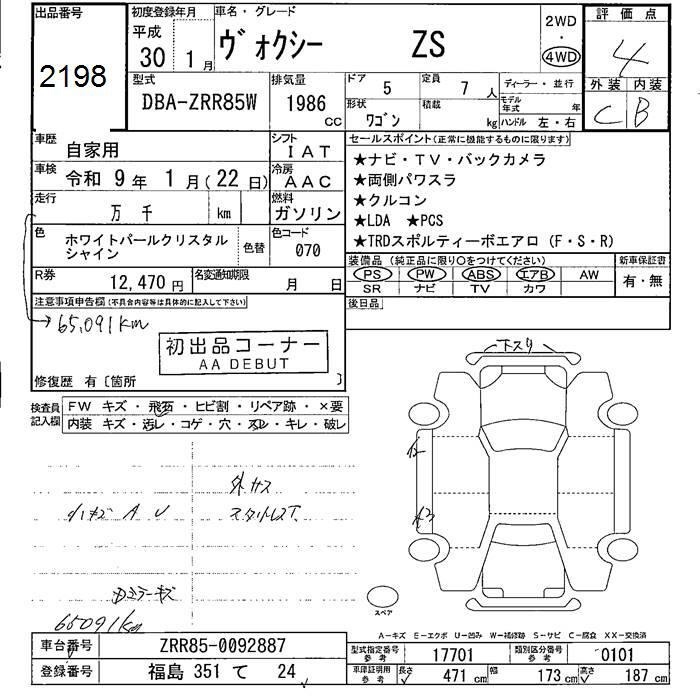 出品番号
2198
初度登録年月
平成
30 1月
車名・グレード
ヴォクシー ZS
2WD
・
4WD
評価点
4
外装 内装
C B
型式
DBA-ZRR85W
排気量
1986
cc
ドア
5
定員
7人
ディーラー・並行
形状
ワゴン
積載
kg
モデル年式 年
ハンドル 左・右
車歴
自家用
シフト
IAT
車検
令和 9年 1月(22日)
冷房
AAC
走行
万 千 km
燃料
ガソリン
色
ホワイトパールクリスタル
シャイン
色替
色コード
070
R券
12,470円
名変通知期限
月 日
セールスポイント(正常に機能するものに限ります)
★ナビ・TV・バックカメラ
★両側パワスラ
★クルコン
★LDA ★PCS
★TRDスポルティーボエアロ(F・S・R)
装備品(純正品に限り○をつけてください)
PS PW ABS エアB AW
SR ナビ TV カワ
新車保証書
有・無
後日品
注意事項申告欄(不具合内容等は具体的に記入して下さい)
65,091km
初出品コーナー
AA DEBUT
修復歴 有〔箇所 〕
検査員
記入欄
FW キズ・飛石・ヒビ割・リペア跡・×要
内装 キズ・汚レ・コゲ・穴・スレ・キレ・破レ
下スリ
小キズ A U
外サス
スタットレスT
ミラーキズ
65091km
スペア
A-キズ E-エクボ U-凹み W-補修跡 S-サビ C-腐食 XX-交換済
車台番号
ZRR85-0092887
登録番号
福島 351 て 24
型式指定番号
参考
17701
類別区分番号
参考
0101
車庫証明用
参考
長さ 471cm 幅 173cm 高さ 187cm